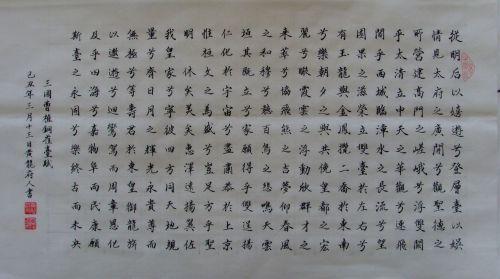 從明后以嬉遊兮登層臺以娛
情見太府之廣開兮觀聖德之
所營建高門之嵯峨兮浮雙闕
乎太清立中天之華觀兮連飛
閣乎西城臨漳水之長流兮望
園果之滋榮立雙臺於左右兮
有玉龍與金鳳攬二喬於東南
兮樂朝夕之與共俯皇都之宏
麗兮瞰雲霞之浮動欣群才之
來萃兮協飛熊之吉夢仰春風
之和穆兮聽百鳥之悲鳴雲天
垣其既立兮家願得乎雙逞揚
仁化於宇宙兮盡肅恭於上京
惟桓文之為盛兮豈足方乎聖
明 休矣美矣惠澤遠揚翼佐
我皇家兮寧彼四方同天地規
量兮齊日月之輝光永貴尊而
無極兮等君壽於東皇御龍旂
以遨遊兮迴鸞駕而周章恩化
及乎四海兮嘉物阜而民康願
斯臺之永固兮樂終古而未央
三國曹植銅雀臺賦
己丑年三月十三日黃龍府人書